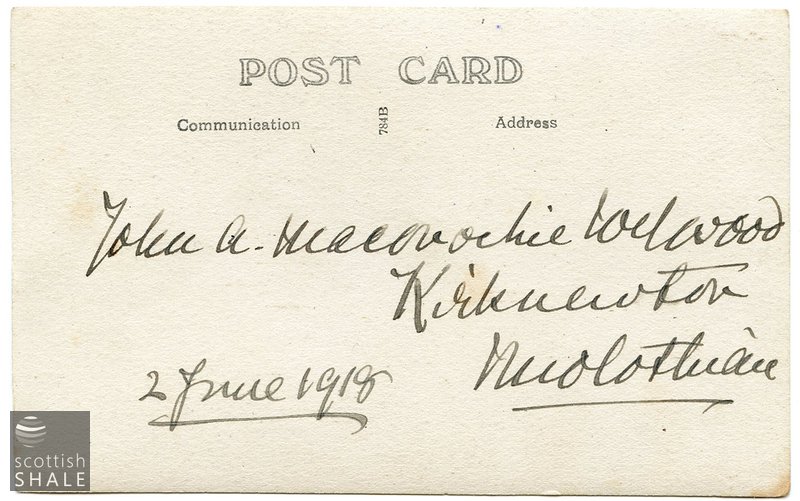 POST CARD
Communication
784B
Address
John A. Maconochie Welwood
Kirknewton
Midlothian
2 June 1918
scottish
SHALE